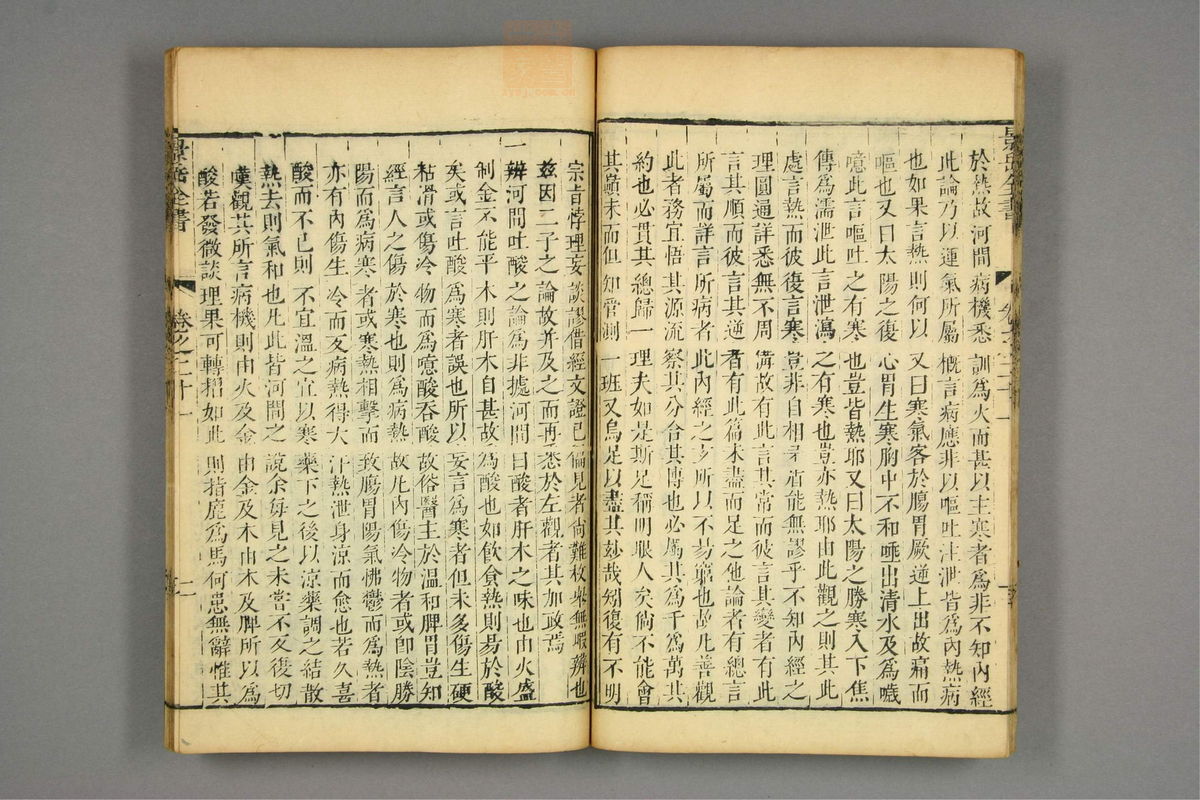 於熱故河間病機悉訓爲火而甚以主寒者爲非不知內經
此論乃以運氣所屬概言病應非以嘔吐注泄皆爲內熱病
也如果言熱則何以又曰寒氣客於腸胃厥逆上出故痛而
嘔也又曰太陽之復心胃生寒胸中不和唾出清水及爲噦
噫此言嘔吐之有寒也豈皆熱耶又曰太陽之勝寒入下焦
傳爲濡泄此言泄瀉之有寒也豈亦熱耶由此觀之則其此
處言熱而彼復言寒豈非自相矛盾能無謬乎不知內經之
理圓通詳悉無不周備故有此言其常而彼言其變者有此
言其順而彼言其逆者有此篇未盡而足之他論者有總言
所屬而詳言所病者此內經之玅所以不易窮也故凡善觀
此者務宜悟其源流察其分合其博也必燭其爲千爲萬其
約也必貫其總歸一理夫如是斯足稱明眼人矣倘不能會
其巔末而但知管測一班又烏足以盡其玅哉矧復有不明
宗旨悖理妄談謬借經文證己偏見者尚難枚舉無暇辨也
茲因二子之論故并及之而再悉於左觀者其加政焉
一辨河間吐酸之論爲非據河間曰酸者肝木之味也由火盛
制金不能平木則肝木自甚故爲酸也如飲食熱則易於酸
矣或言吐酸爲寒者誤也所以妄言爲寒者但未多傷生硬
粘滑或傷冷物而爲噫酸吞酸故俗醫主於溫和脾胃豈知
經言人之傷於寒也則爲病熱故凡內傷冷物者或卽陰勝
陽而爲病寒者或寒熱相擊而致腸胃陽氣怫鬱而爲熱者
亦有內傷生冷而反病熱得大汗熱泄身涼而愈也若久喜
酸而不已則不宜溫之宜以寒藥下之後以涼藥調之結散
熱去則氣和也凡此皆河間之說余每見之未嘗不反復切
嘆觀其所言病機則由火及金由金及木由木及脾所以爲
酸若發微談理果可轉摺如此則指鹿爲馬何患無辭惟其
景岳全書
卷之二十一